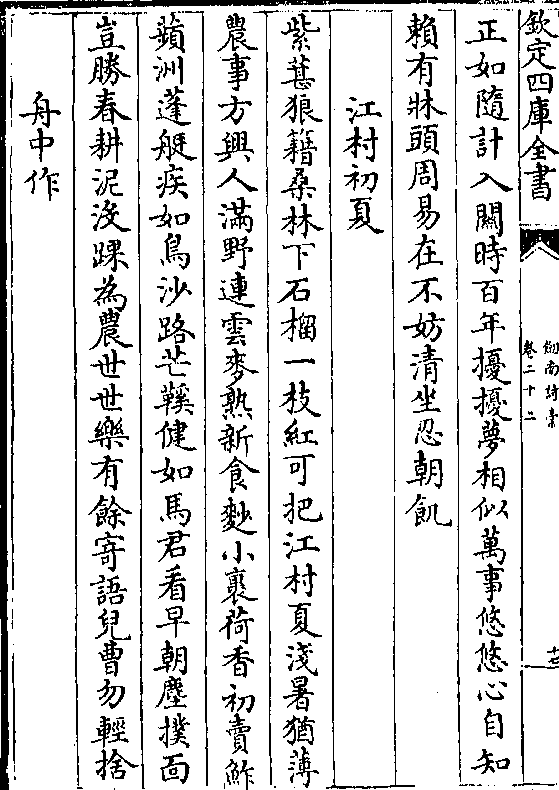 欽定四庫全書
劍南詩藁
卷二十二
十三
正如隨計入關時百年擾擾夢相似萬事悠悠心自知
賴有牀頭周易在不妨清坐忍朝飢
江村初夏
紫葚狼籍桑林下石榴一枝紅可把江村夏淺暑猶薄
農事方興人滿野連雲麥熟新食麨小裹荷香初賣鮓
蘋洲蓬艇疾如鳥沙路芒鞵健如馬君看早朝塵撲面
豈勝春耕泥沒踝為農世世樂有餘寄語兒曹勿輕捨
舟中作